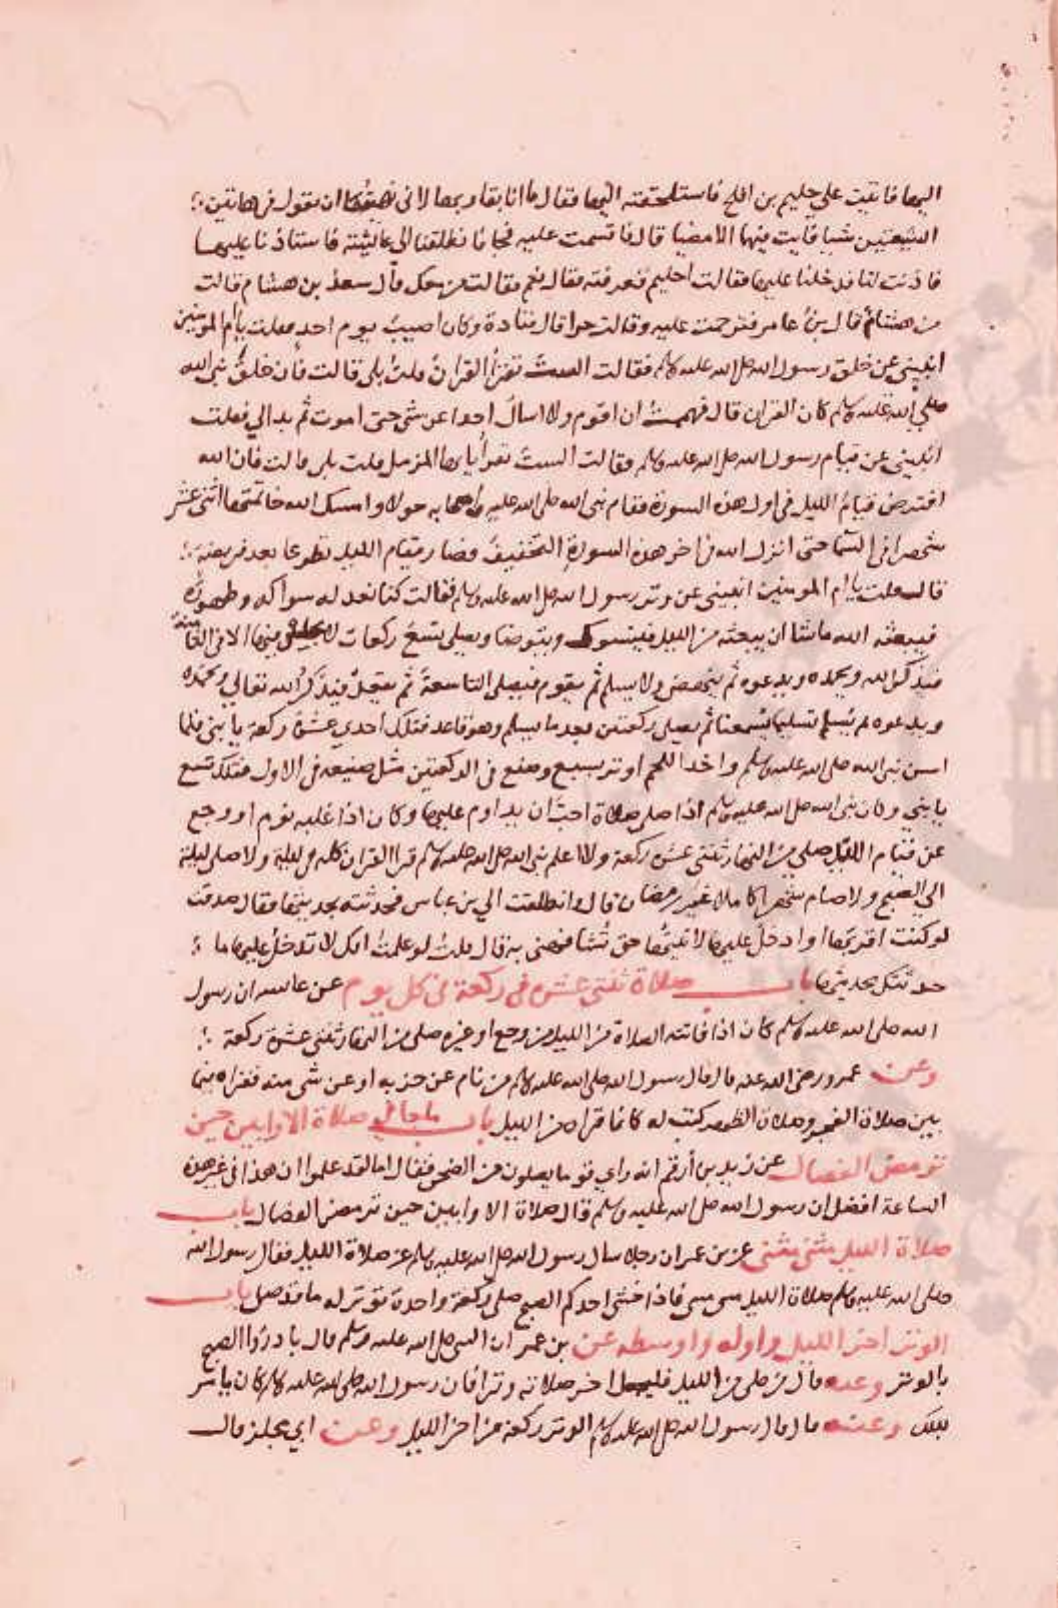 اليها فاتيت علي حليم بن افلح فاستلحقته اليها فقال ما انا بقاربها لاني نهيتها ان تقول في هاتين
الشيعتين شيا فابت فيهما الا مضيا قال فاقسمت عليه فجا فانطلقنا الي عايشة فاستاذنا عليها
فاذنت لنا فدخلنا عليها فقالت احليم فعرفته فقال نعم فقالت من معك قال سعد بن هشام قالت
من هشام قال بن عامر فترحمت عليه وقالت خيرا قال قتادة وكان اصيب يوم احد فقلت يا ام المومنين
انبيني عن خلق رسول الله صلى الله عليه وسلم فقالت الست تقرا القران قلت بلي قالت فان خلق نبي الله
صلي الله عليه وسلم كان القران قال فهممت ان اقوم ولا اسال احدا عن شي حتى اموت ثم بدا لي فقلت
انبيني عن قيام رسول الله صلى الله عليه وسلم فقالت الست تقرا يا ايها المزمل قلت بلي قالت فان الله
افترض قيام الليل في اول هذه السورة فقام نبي الله صلى الله عليه واصحابه حولا وامسك الله خاتمتها اثني عشر
شهرا في السما حتى انزل الله في اخر هذه السورة التخفيف فصار قيام الليل تطوعا بعد فريضة
قال فقلت يا ام المومنين انبيني عن وتر رسول الله صلى الله عليه وسلم فقالت كنا نعد له سواكه وطهوره
فيبعثه الله ما شا ان يبعثه من الليل فيتسوك ويتوضا ويصلي تسع ركعات لا يجلس فيها الا في الثامنة
فيذكر الله ويحمده ويدعوه ثم ينهض ولا يسلم ثم يقوم فيصلي التاسعة ثم يقعد فيذكر الله تعالي ويحمده
ويدعوه ثم يسلم تسليما يسمعنا ثم يصلي ركعتين بعد ما يسلم وهو قاعد فتلك احدي عشرة ركعة يا بني فلما
اسن نبي الله صلى الله عليه وسلم واخذ اللحم اوتر بسبع وصنع في الركعتين مثل صنيعه في الاول فتلك تسع
يا بني وكان نبي الله صلى الله عليه وسلم اذا صلي صلاة احب ان يداوم عليها وكان اذا غلبه نوم او وجع
عن قيام الليل صلي من النهار ثنتي عشرة ركعة ولا اعلم نبي الله صلى الله عليه وسلم قرا القران كله في ليلة ولا صلي ليلة
الي الصبح ولا صام شهرا كاملا غير رمضان قال وانطلقت الي بن عباس فحدثته بحديثها فقال صدقت
لو كنت اقربها او ادخل عليها لاتيتها حتى تشافهني به قال قلت لو علمت انك لا تدخل عليها ما
حدثتك بحديثها باب صلاة ثنتي عشرة في ركعة في كل يوم عن عائشة ان رسول
الله صلى الله عليه وسلم كان اذا فاتته الصلاة من الليل من وجع او غيره صلى من النهار ثنتي عشرة ركعة
وعن عمر رضي الله عنه قال قال رسول الله صلى الله عليه وسلم من نام عن حزبه او عن شي منه فقراه فيما
بين صلاة الفجر وصلاة الظهر كتب له كانما قراه من الليل باب ما جا في صلاة الاوابين حين
ترمض الفصال عن زيد بن أرقم انه راي قوما يصلون من الضحى فقال اما لقد علموا ان هذا في غير هذه
الساعة افضل ان رسول الله صلى الله عليه وسلم قال صلاة الاوابين حين ترمض الفصال باب
صلاة الليل مثني مثني عن بن عمر ان رجلا سال رسول الله صلى الله عليه وسلم عن صلاة الليل فقال رسول الله
صلى الله عليه وسلم صلاة الليل مثني مثني فاذا خشي احدكم الصبح صلي ركعة واحدة توتر له ما قد صلي باب
الوتر اخر الليل واوله واوسطه عن بن عمر ان النبي صلى الله عليه وسلم قال بادروا الصبح
بالوتر وعنه قال من صلي من الليل فليجعل اخر صلاته وترا فان رسول الله صلى الله عليه وسلم كان يامر
بذلك وعنه قال قال رسول الله صلى الله عليه وسلم الوتر ركعة من اخر الليل وعن ابي مجلز قال